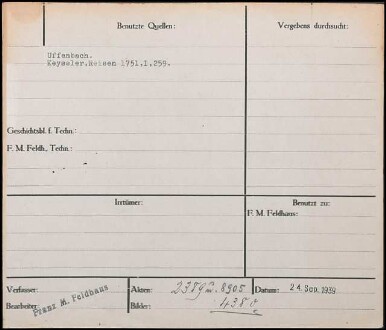 Benutzte Quellen:
Vergebens durchsucht:
Uffenbach.
Keyssler.Reisen 1751.I.259.
Geschichtsbl. f. Techn.:
F. M. Feldh., Techn.:
Irrtümer:
Benutzt zu:
F. M. Feldhaus:
Verfasser:
Bearbeiter:
Franz M. Feldhaus
Akten: 2389 u. 8905
Bilder: 438
Datum: 24. Sep. 1939